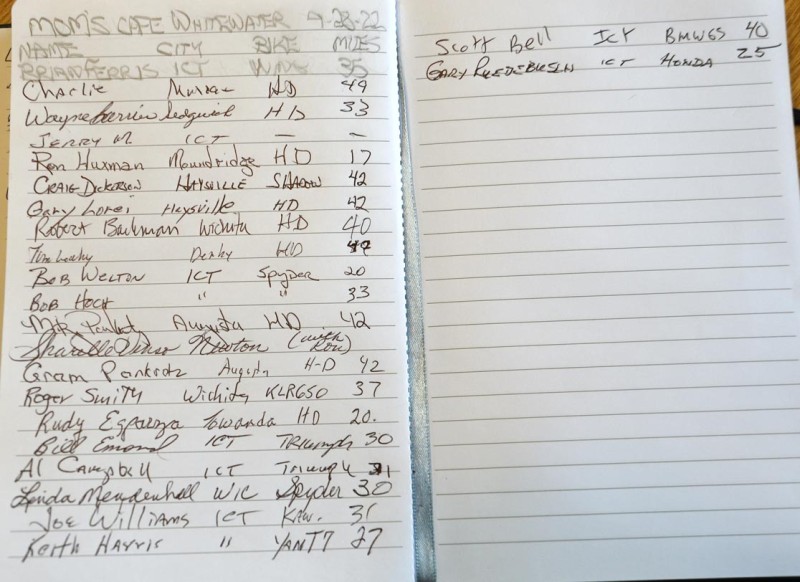 MOM'S CAFE WHITEWATER 9-28-22
NAME CITY BIKE MILES
BRIAN FERRIS ICT WNG 35
Charlie HD 49
Wayne Sedgwick HD 33
JERRY M. ICT — —
Ron Huxman Moundridge HD 17
CRAIG DICKERSON HAYSVILLE SHADOW 42
Gary Lorei Haysville HD 42
Robert Backman Wichita HD 40
Tim Leahy Derby HD
BOB WELTON ICT Spyder 20
BOB HOCH " " 33
Augusta HD 42
Newton (with Ron)
Gram Pankratz Augusta H-D 42
Roger Smith Wichita KLR650 37
Rudy Esparza Towanda HD 20.
Bill Emond ICT Triumph 30
Al Campbell ICT Triumph 31
Linda Mendenhall WIC Spyder 30
Joe Williams ICT KAW. 31
Keith Harris " 27
Scott Bell ICT BMWGS 40
GARY ICT HONDA 25